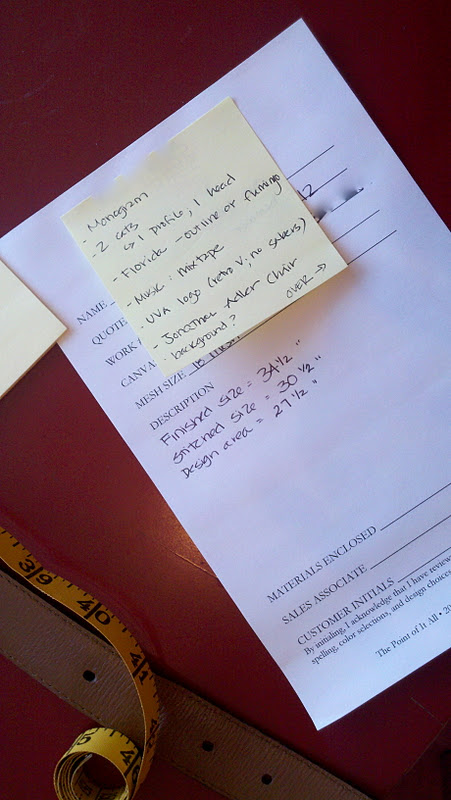 Monogram
- 2 cats
↳ 1 profile, 1 head
- Florida - outline or flamingo
- Music: mixtape
- UVA logo (retro V; no sabers)
- Jonathan Adler Chair
- background?
OVER →
12
NAME
QUOTE
WORK
CANVA
MESH SIZE
DESCRIPTION
Finished size = 34 1/2"
Stitched size = 30 1/2"
Design area = 27 1/2"
MATERIALS ENCLOSED
SALES ASSOCIATE
CUSTOMER INITIALS
By initialing, I acknowledge that I have review
spelling, color selections, and design choices
The Point of It All • 20
39
40
41